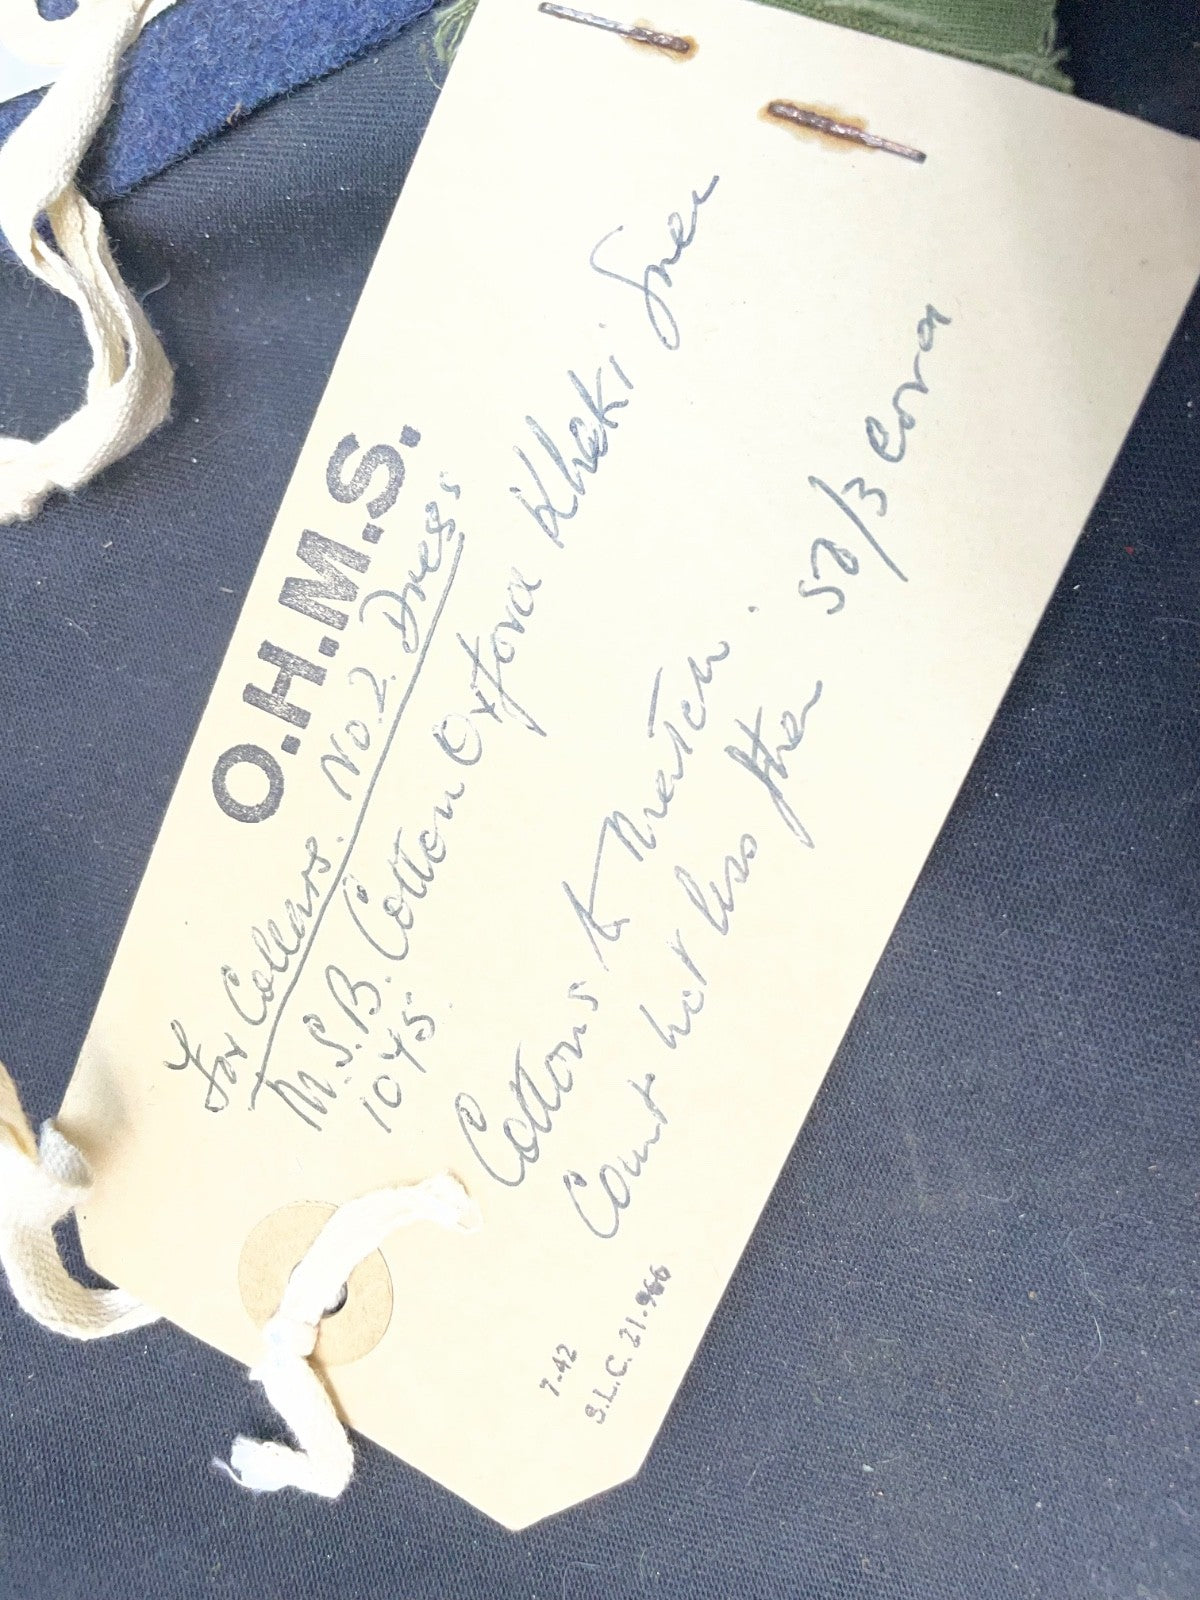 O.H.M.S.
For Collars. No.2. Dress
M.S.B. Cotton Oxford Khaki Green
1045.
Cottons to Match.
Count not less than 50/3 Cord
7-42
S.L.C. 21-966